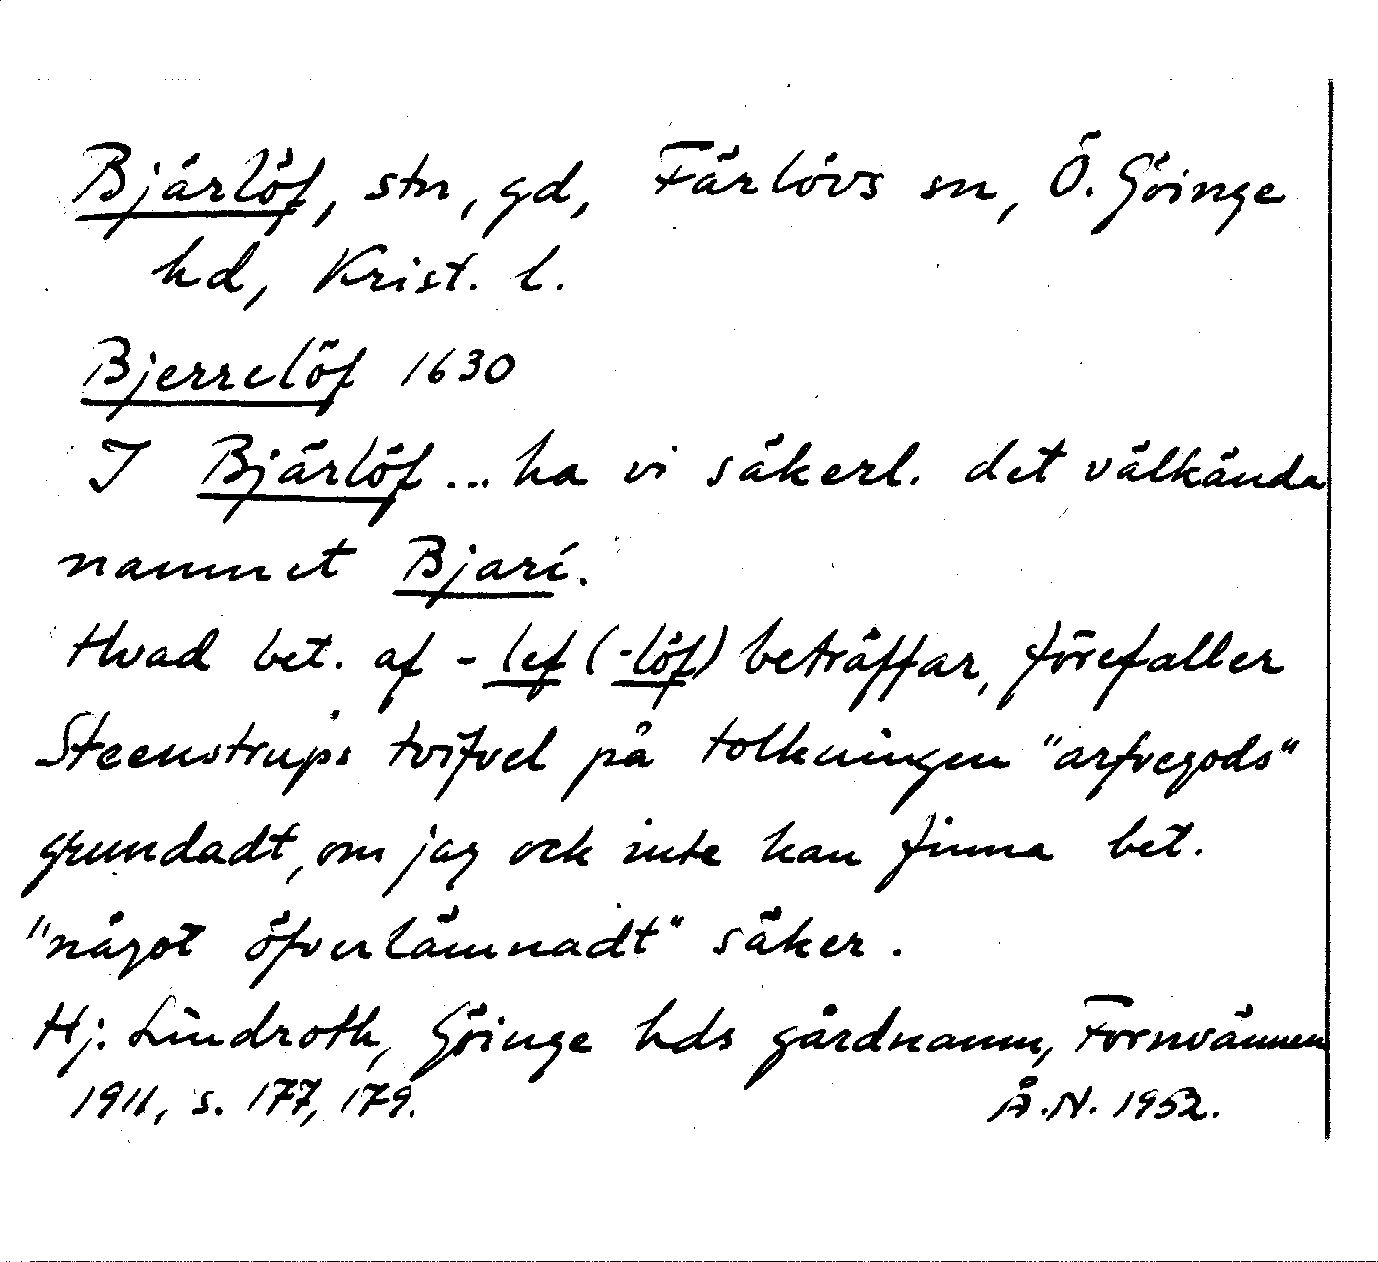 Bjärlöf, stn, gd, Färlövs sn, Ö. Göinge
hd, Krist. l.
Bjerrelöf 1630
I Bjärlöf... ha vi säkerl. det välkända
namnet Bjari.
Hvad bet. af -lef (-löf) beträffar, förefaller
Steenstrups tvifvel på tolkningen "arfvegods"
grundadt, om jag ock inte kan finna bet.
"något öfverlämnadt" säker.
Hj. Lindroth, Göinge hds gårdnamn, Fornvännen
1911, s. 177, 179.
Å.N. 1952.